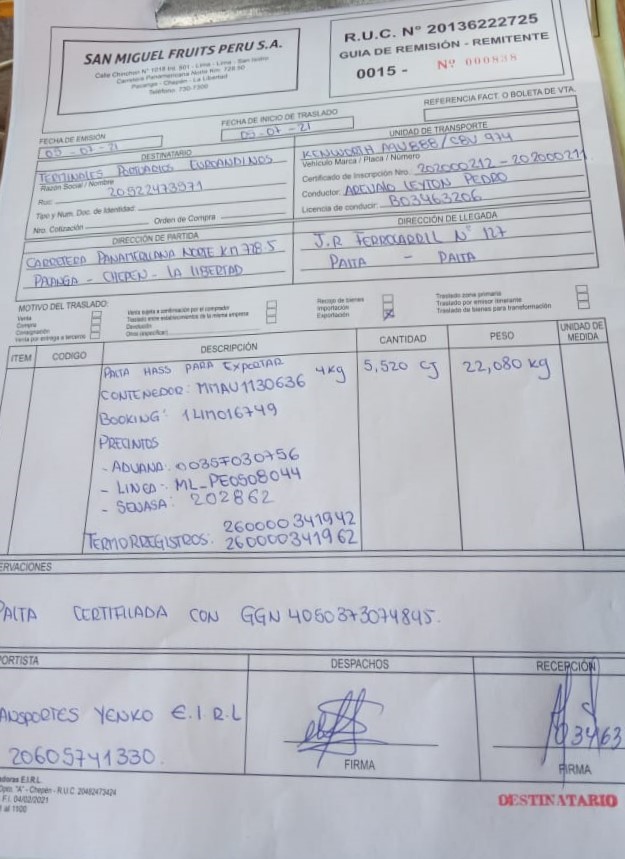 SAN MIGUEL FRUITS PERU S.A.
Calle Chinchon N° 1018 Int. 601 - Lima - Lima - San Isidro
Carretera Panamericana Norte Km. 728.50
Pacanga - Chepén - La Libertad
Teléfono: 730-7308
R.U.C. N° 20136222725
GUIA DE REMISIÓN - REMITENTE
0015 - Nº 000838
REFERENCIA FACT. O BOLETA DE VTA.
FECHA DE EMISIÓN
05-07-21
FECHA DE INICIO DE TRASLADO
05-07-21
DESTINATARIO
TERMINALES PORTUARIOS EUROANDINOS
Razón Social / Nombre
Ruc: 20522473571
Tipo y Num. Doc. de Identidad:
Nro. Cotización: Orden de Compra:
UNIDAD DE TRANSPORTE
KENWORTH
Vehículo Marca / Placa / Número
Certificado de Inscripción Nro. 202000212-202000211
Conductor: AREVALO LEYTON PEDRO
Licencia de conducir: B03463206
DIRECCIÓN DE PARTIDA
CARRETERA PANAMERICANA NORTE KM 728.5
PACANGA - CHEPEN - LA LIBERTAD
DIRECCIÓN DE LLEGADA
J.R FERROCARRIL N° 127
PAITA - PAITA
MOTIVO DEL TRASLADO:
Venta
Compra
Consignación
Venta por entrega a terceros
Venta sujeta a confirmación por el comprador
Traslado entre establecimientos de la misma empresa
Devolución
Otros (especificar)
Recojo de bienes
Importación
Exportación X
Traslado zona primaria
Traslado por emisor itinerante
Traslado de bienes para transformación
ITEM CODIGO DESCRIPCIÓN CANTIDAD PESO UNIDAD DE MEDIDA
PALTA HASS PARA EXPORTAR 4kg 5,520 CJ 22,080 kg
CONTENEDOR: MMAU1130636
BOOKING: 14IM016749
PRECINTOS
- ADUANA: 00357030756
- LINEA: ML-PE0508044
- SENASA: 202862
260000341942
TERMORREGISTROS: 260000341962
ERVACIONES
PALTA CERTIFICADA CON GGN 4050373074845.
PORTISTA DESPACHOS RECEPCIÓN
ANSPORTES YENKO E.I.R.L
20605741330.
03463
FIRMA FIRMA
adoras E.I.R.L.
Dpto. "A" - Chepén - R.U.C. 20482473424
F.I. 04/02/2021
al 1500
DESTINATARIO